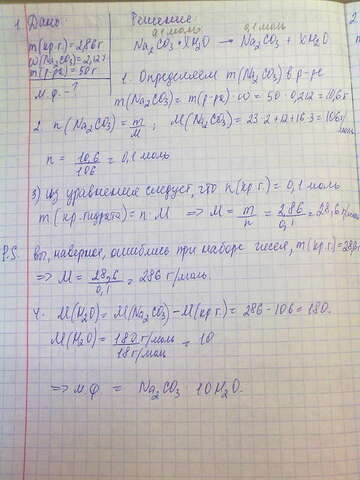 1. Дано: Решение:
0,1 моль 0,1 моль
m(кр.г.)=2,86г Na₂CO₃·XH₂O → Na₂CO₃ + XH₂O
ω(Na₂CO₃)=21,2%
m(р-ра)=50г 1. Определяем m(Na₂CO₃) в р-ре
М.ф.-? m(Na₂CO₃)=m(р-ра)·ω=50·0,212=10,6г
2. n(Na₂CO₃)=m/M; M(Na₂CO₃)=23·2+12+16·3=106г/моль
n=10,6/106=0,1 моль
3) из уравнения следует, что n(кр.г.)=0,1 моль
m(кр.гидрата)=n·M => M=m/n=2,86/0,1=28,6г/моль
P.S. вы, наверное, ошиблись при наборе чисел, m(кр.г.)=28,6г
=> M=28,6/0,1=286 г/моль.
4. M(H₂O)=M(Na₂CO₃)-M(кр.г.)=286-106=180.
M(H₂O)=180 г/моль/18 г/моль=10
=> м.ф. = Na₂CO₃·10H₂O.